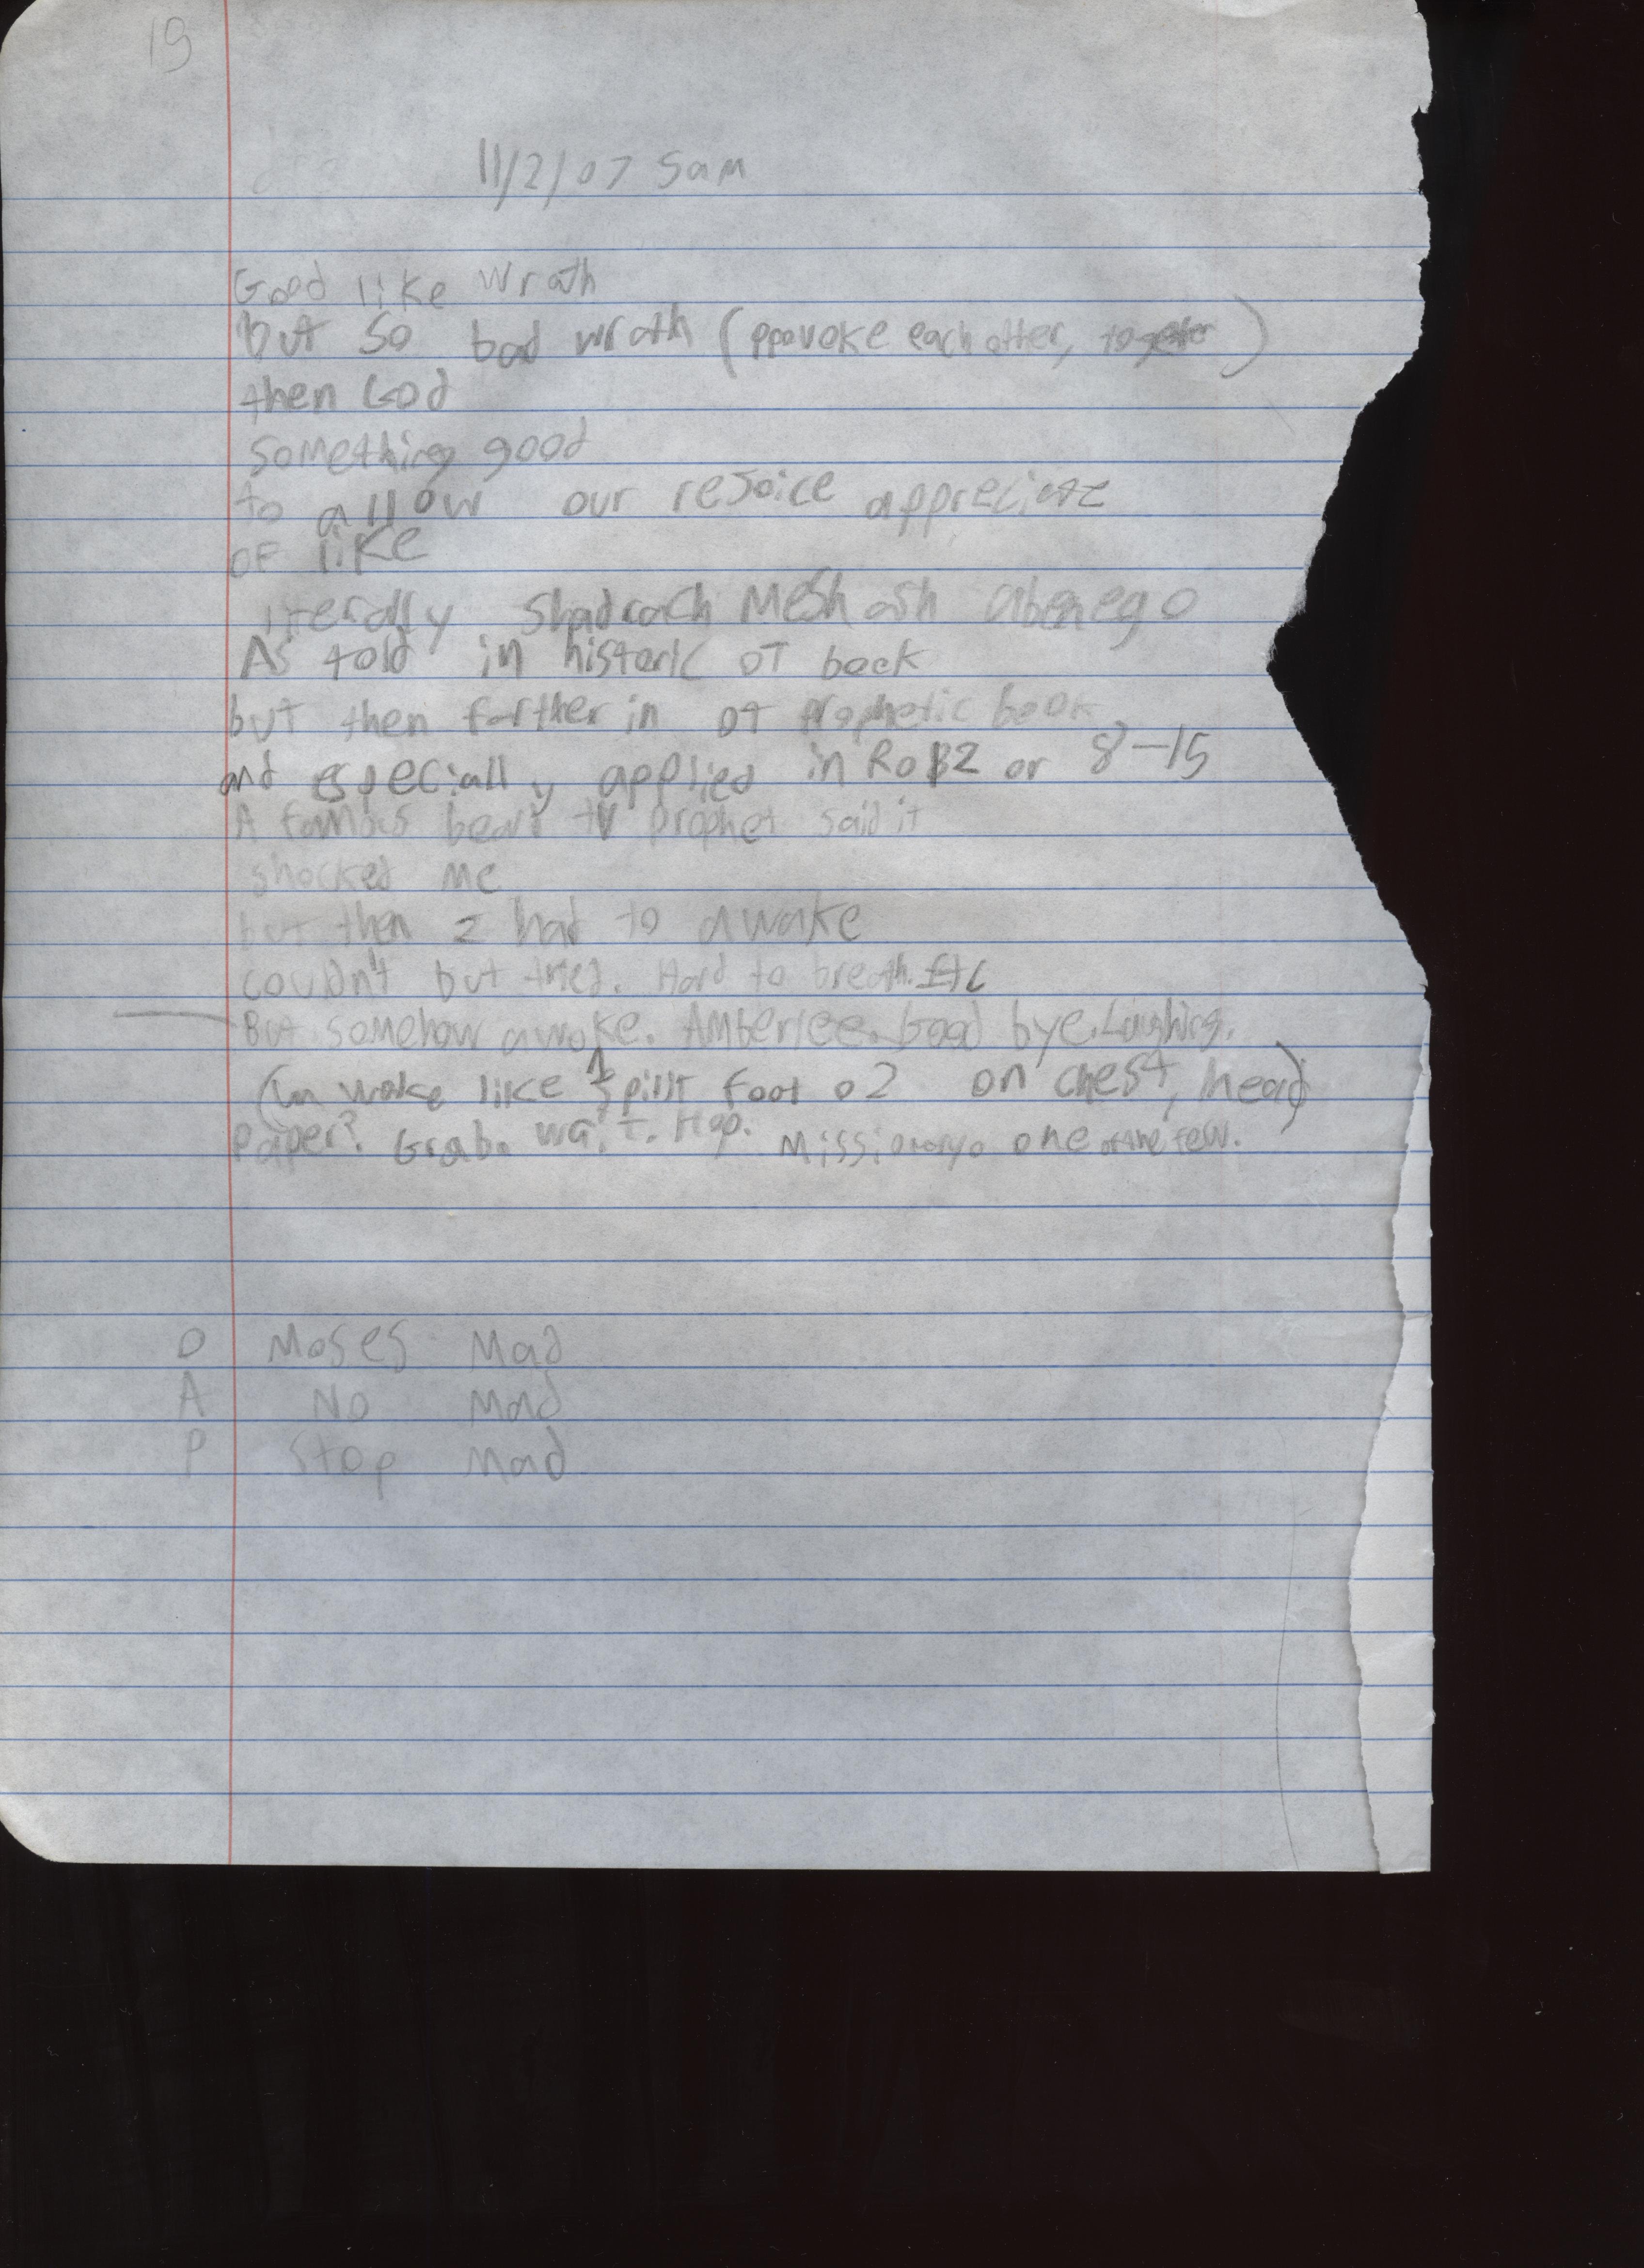 19
11/2/07 5am
Good like wrath
but so bad wrath (provoke each other, together)
then God
something good
to allow our rejoice appreciate
of like
literally Shadrach Meshash abenego
As told in historic OT book
but then farther in OT prophetic book
and especially applied in Ro 12 or 8-15
A famous beard tv prophet said it
shocked me
but then I had to awake
couldn't but tried. Hard to breath. Etc
But somehow awoke. Amberlee. Good bye. Laughing.
(In woke like 1 spirit foot o2 on chest, head)
paper? Grab. wait. Hop. Missionary. one of the few.
D Moses Mad
A No Mad
P Stop Mad